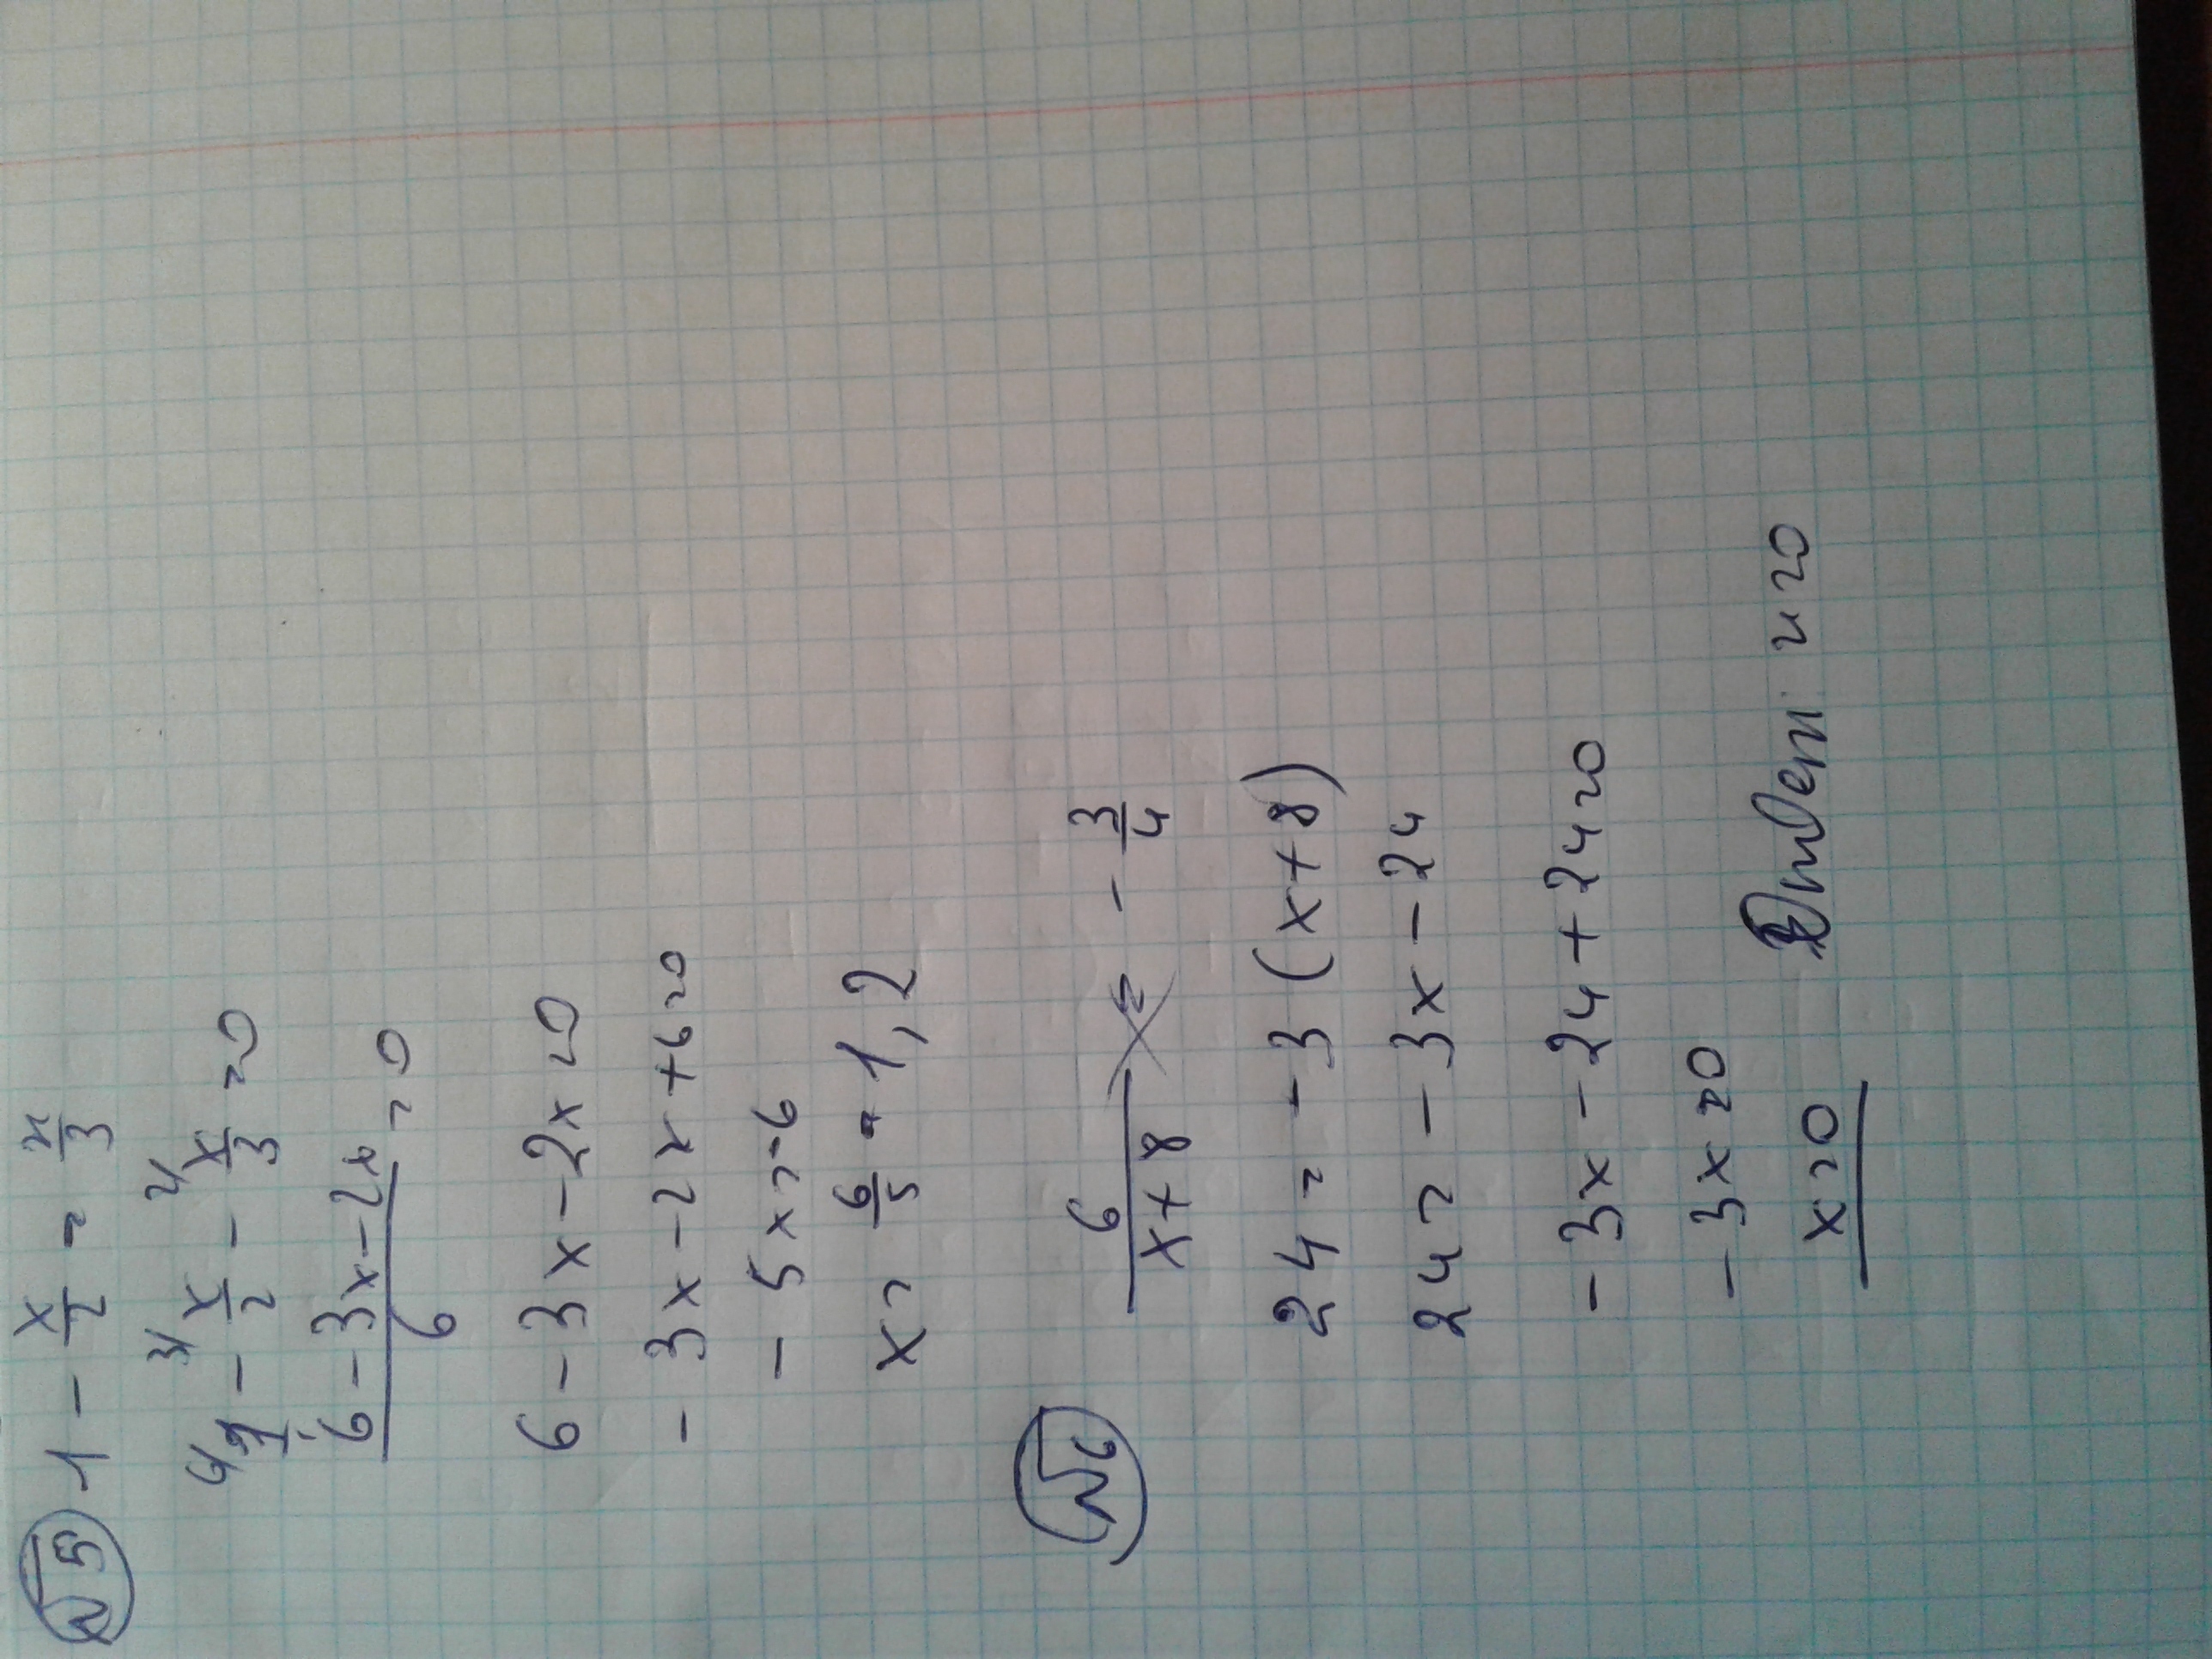 №5 1 - x/2 = x/3
6/ 1/1 - 3/ x/2 - 2/ x/3 = 0
(6 - 3x - 2x)/6 = 0
6 - 3x - 2x = 0
- 3x - 2x + 6 = 0
- 5x = -6
x = 6/5 = 1,2
№6 6/(x+8) = - 3/4
24 = - 3 (x+8)
24 = - 3x - 24
- 3x - 24 + 24 = 0
- 3x = 0
x = 0 Ответ: x = 0